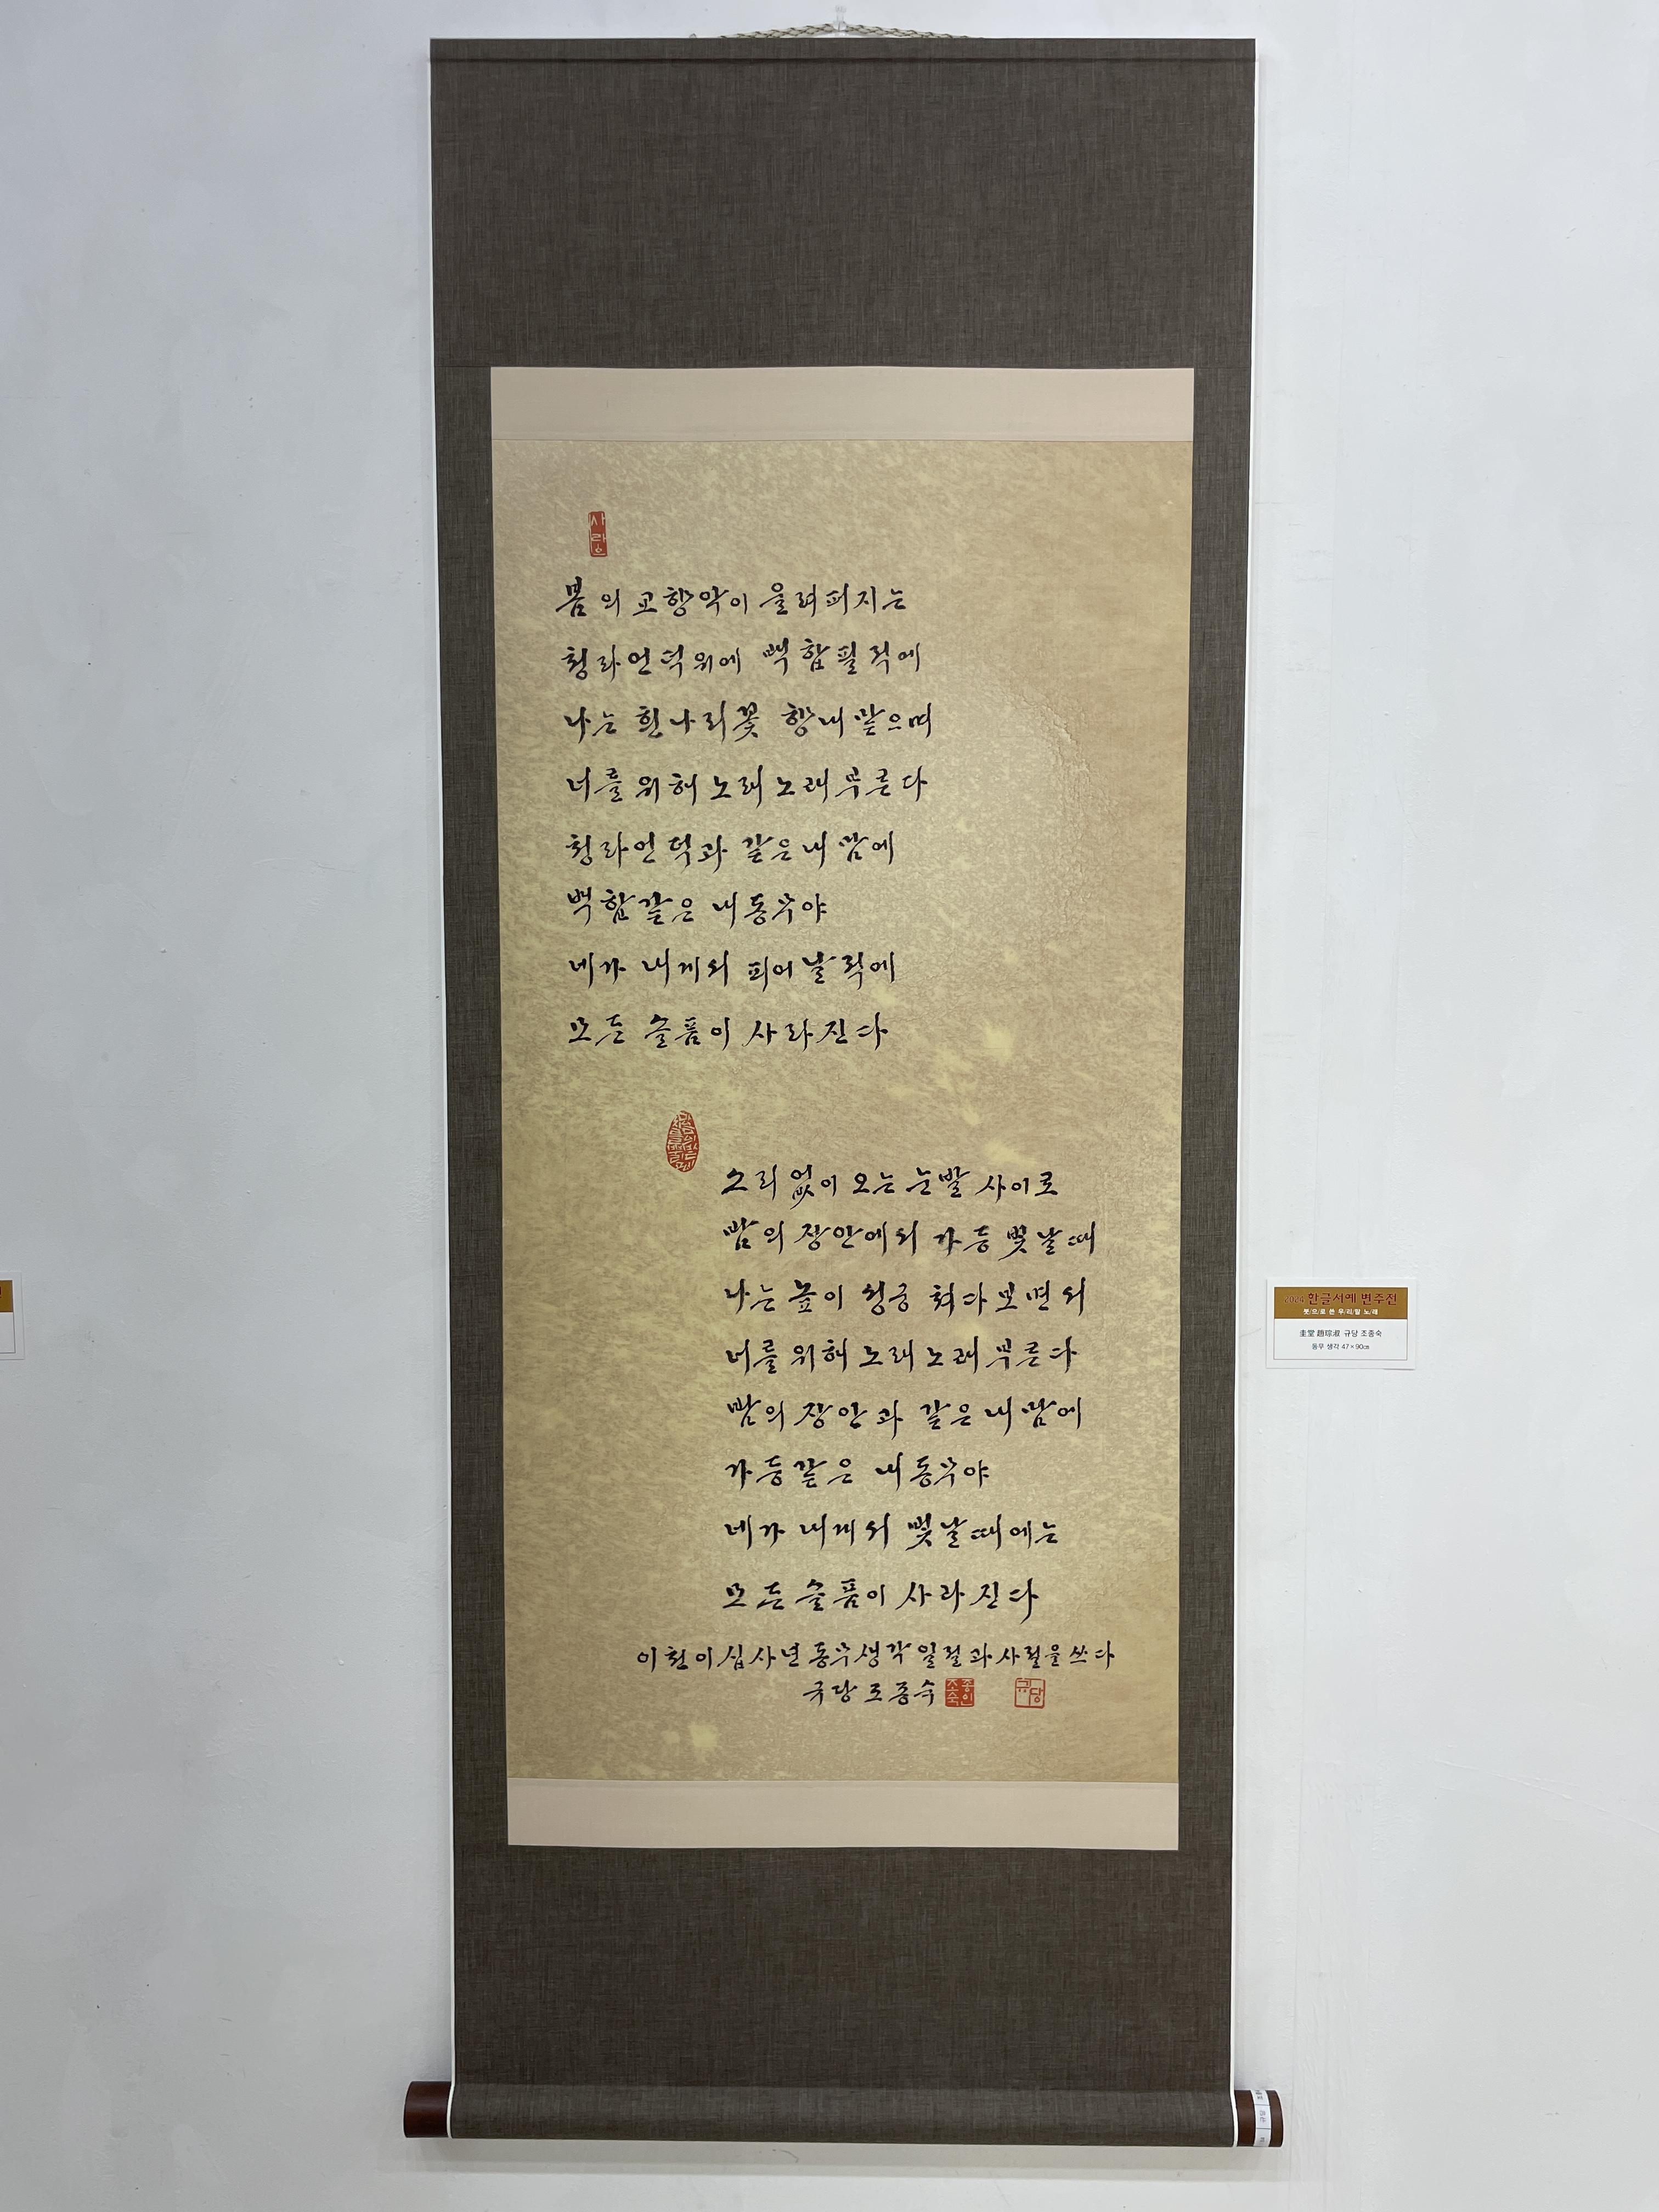 사랑
봄의 교향악이 울려퍼지는
청라언덕위에 백합필적에
나는 흰나리꽃 향내 맡으며
너를 위해 노래 노래 부른다
청라언덕과 같은 내 맘에
백합같은 내 동무야
네가 내게서 피어날 적에
모든 슬픔이 사라진다
소리 없이 오는 눈발 사이로
밤의 장안에서 가등 빛날 때
나는 높이 성궁 쳐다보면서
너를 위해 노래 노래 부른다
밤의 장안과 같은 내 맘에
가등같은 내 동무야
네가 내게서 빛날 때에는
모든 슬픔이 사라진다
이천이십사년 동무생각 일절과 사절을 쓰다
규당 조종숙
조종숙인
규당
2024 한글서예 변주전
붓으로 쓴 우리말 노래
圭堂 趙琮淑 규당 조종숙
동무 생각 47×90㎝